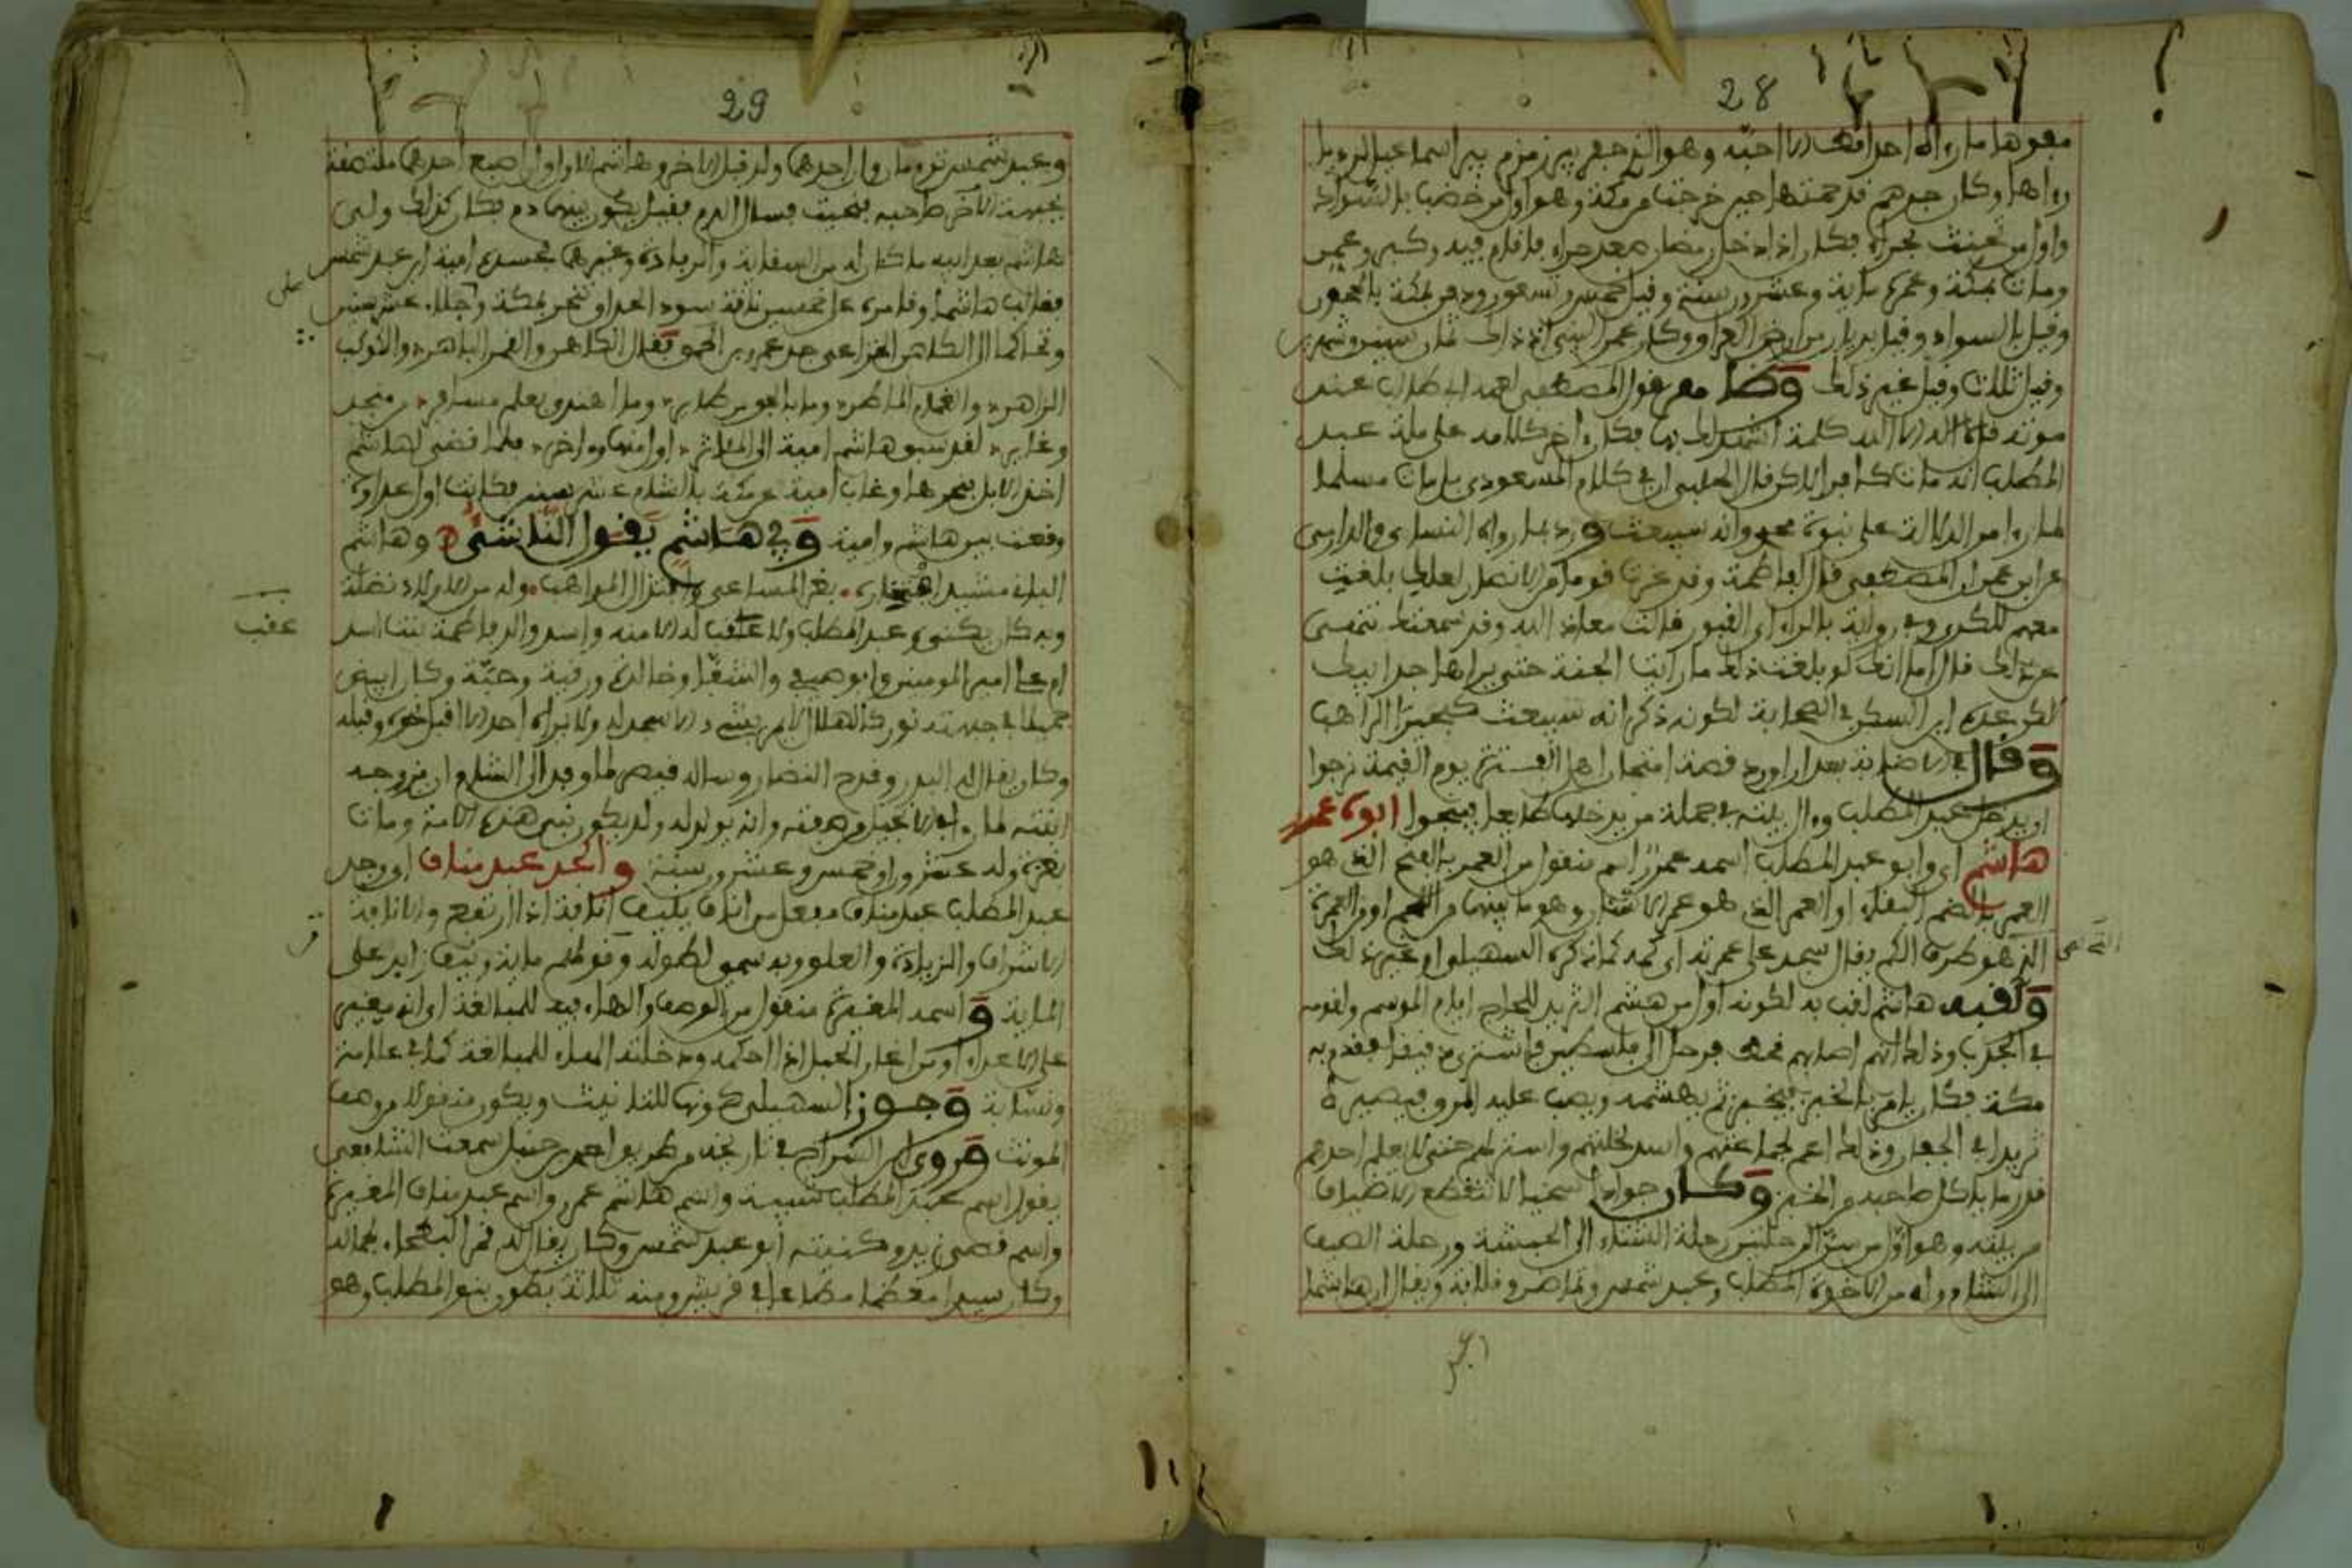 28
وهو الذي حفر بير زمزم بير اسماعيل
رواها وكان جرهم قد حين خرجت من مكة وهو اول من خضب بالسواد
واول من تحنث بحراء فكان اذا دخل رمضان صعد حراء
ومات بمكة وعمره ماية وعشرون سنة وقيل خمس وتسعون ودفن بمكة بالحجون
وقيل بالسواد وقيل وكان عمر النبي اذ ذاك ثمان سنين وشهرين
وقيل ثلاث وقيل غير ذلك المصطفى لعمه ابي طالب عند
موته قل لا اله الا الله كلمة اشهد لك بها فكان اخر كلامه على ملة عبد
المطلب انه مات كافرا لاكن قال الحلبي ان في كلام المسعودي بل مات مسلما
لما راى من الدلالات على نبوة محمد وانه سيبعث ورد بما رواه النساي والدارمي
عن ابن عمر ان المصطفى قال لفاطمة وقد عزت قوما من الانصار لعلك بلغت
معهم للكدى وفي رواية بالراء اي القبور قالت معاذ الله وقد سمعتك تنهى
عن ذلك قال اما انك لو بلغت ذلك ما رايت الجنة حتى يراها جد ابيك
لكن عده ابن السكن في الصحابة لكونه ذكر انه سيبعث كبحيرا الراهب
وقال في الاصابة بعد ان اورد قصة امتحان اهل الفترة يوم القيمة نرجوا
ان يدخل عبد المطلب وال بيته في جملة من يدخلها طايعا فينجوا ابوه عمرو
هاشم اي وابو عبد المطلب اسمه عمرو اسم منقول من العمر بالفتح الذي هو
العمر بالضم البقاء او العمر الذي هو عمر الاسنان وهو ما بينها من اللحم او العمر
الذي هو طرف الكم يقال سجد على عمريه اي كميه كما ذكره السهيلي او غير ذلك
ولقبه هاشم لقب به لكونه اول من هشم الثريد للحجاج ايام الموسم ولقومه
في الجدب وذلك انهم اصابهم قحط فرحل الى فلسطين فاشترى دقيقا فقدم به
مكة فكان يامر بالخبز فيخبز ثم يهشمه ويصب عليه المرق فيصيره
ثريدا في الجفان
قدر ما ياكل صاحبه من الخبز وكان جوادا سخيا لا تنقطع الاضياف
من بيته وهو اول من سن الرحلتين رحلة الشتاء الى الحبشة ورحلة الصيف
الى الشام وله من الاخوة المطلب وعبد شمس ونوفل ويقال ان هاشما
29
وعبد شمس توءمان وان احدهما ولد قبل الاخر وهاشم الاول اصبع احدهما ملتصقة
بجبهة الاخر صاحبه فنحيت فسال الدم فقيل يكون بينهما دم فكان كذلك وولي
هاشم بعد ابيه ما كان له من السقاية والرفادة وغيرهما فحسده امية ابن عبد شمس
هاشما وقامره على خمسين ناقة سود الحدق تنحر بمكة وجلاء عشر سنين
وتحاكما الى الكاهن الخزاعي جد عمرو بن الحمق فقال الكاهن والقمر الباهر والكوكب
الزاهر والغمام الماطر وما بالجو من طاير وما اهتدى بعلم مسافر من منجد
وغاير لقد سبق هاشم امية الى الماثر اول منها واخر فلما قضى لهاشم
اخذ الابل فنحرها وغاب امية عن مكة بالشام عشر سنين فكانت اول عداوة
وقعت بين هاشم وامية وفي هاشم يقول الناشي وهاشم
الباني مشيد افتخاره بغر المساعي وابتذال المواهب وله من الاولاد نضلة
وبه كان يكنى وعبد المطلب ولا عقب له الا منه واسد والد فاطمة بنت اسد
ام علي امير المومنين وابو صيفي والشفا وخالدة ورقية وحية وكان ابيض
جميلا في جبهته نور كالهلال لا يمر بشيء الا سجد له ولا يراه احد الا اقبل نحوه وقبله
وكان يقال له البدر وقدح النضار وساله قيصر لما وفد الى الشام ان يزوجه
ابنته لما راى في الانجيل من صفته وانه يولد له ولد يكون نبي هذه الامة ومات
بغزة وله عشرون او خمس وعشرون سنة والجد عبد مناف اي وجد
عبد المطلب عبد مناف مفعل من اناف ينيف انافة اذا ارتفع والانافة
الاشراف والزيادة والعلو وبه سمي لطوله وقولهم ماية ونيف زايد على
الماية واسمه المغيرة منقول من الوصف والهاء فيه للمبالغة اي انه مغير
على الاعداء او من اغار الحبل اذا احكمه ودخلته الهاء للمبالغة كما في علامة
ونسابة وجوز السهيلي كونها للتانيث ويكون منقولا من وصف
المونث وروى ابن السراج في تاريخه من طريق احمد بن حنبل سمعت الشافعي
يقول اسم عبد المطلب شيبة واسم هاشم عمرو واسم عبد مناف المغيرة
واسم قصي زيد وكنيته ابو عبد شمس وكان يقال له قمر البطحاء لجماله
وكان سيدا معظما مطاعا في قريش ومنه ثلاثة بطون بنو المطلب وهو
عقب